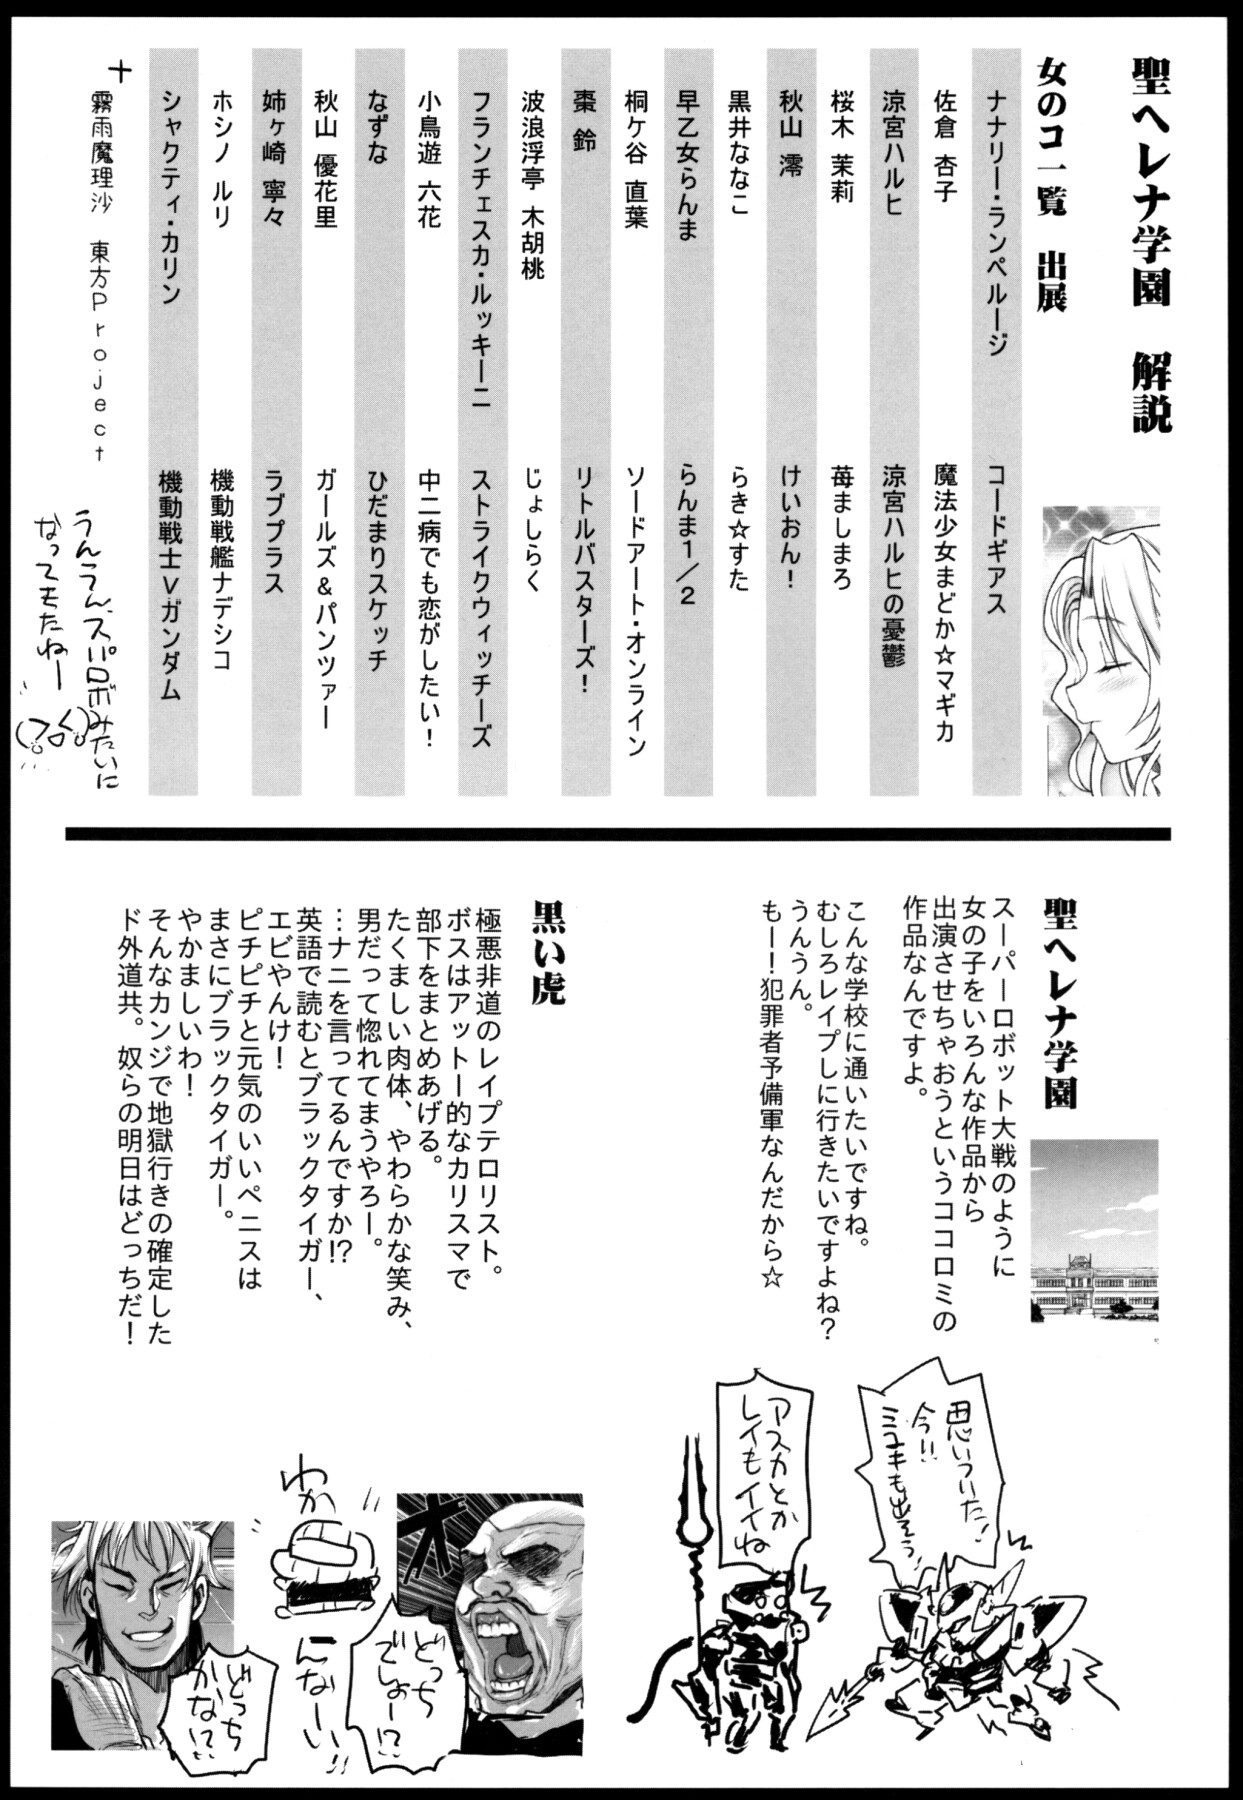 聖ヘレナ学園　解説
女のコ一覧　出展
ナナリー・ランペルージ　コードギアス
佐倉 杏子　魔法少女まどか☆マギカ
涼宮ハルヒ　涼宮ハルヒの憂鬱
桜木 茉莉　苺ましまろ
秋山 澪　けいおん！
黒井ななこ　らき☆すた
早乙女らんま　らんま１／２
桐ケ谷 直葉　ソードアート・オンライン
棗 鈴　リトルバスターズ！
波浪浮亭 木胡桃　じょしらく
フランチェスカ・ルッキーニ　ストライクウィッチーズ
小鳥遊 六花　中二病でも恋がしたい！
なずな　ひだまりスケッチ
秋山 優花里　ガールズ＆パンツァー
姉ヶ崎 寧々　ラブプラス
ホシノ ルリ　機動戦艦ナデシコ
シャクティ・カリン　機動戦士Ｖガンダム
＋ 霧雨魔理沙　東方Project
うんうん、スパロボみたいに
なってきたねー
聖ヘレナ学園
スーパーロボット大戦のように
女の子をいろんな作品から
出演させちゃおうというココロミの
作品なんですよ。
こんな学校に通いたいですね。
むしろレイプしに行きたいですよね？
うんうん。
もー！犯罪者予備軍なんだから☆
思いついた！
今！！
ミユキも出そう！
アスカとか
レイもイイね
黒い虎
極悪非道のレイプテロリスト。
ボスはアットー的なカリスマで
部下をまとめあげる。
たくましい肉体、やわらかな笑み、
男だって惚れてまうやろー。
…ナニを言ってるんですか!?
英語で読むとブラックタイガー、
エビやんけ！
ピチピチと元気のいいペニスは
まさにブラックタイガー。
やかましいわ！
そんなカンジで地獄行きの確定した
ド外道共。奴らの明日はどっちだ！
どっち
でしょー!?
わか
んなーい!!
どっち
かな!?